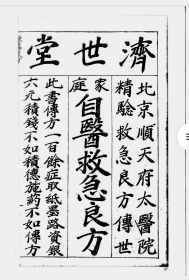 濟世堂
北京順天府太醫院
精驗救急良方傳世
家庭
自醫救急良方
此書傳方一百餘症取紙墨路資銀
六元積錢不如積德施药不如傳方